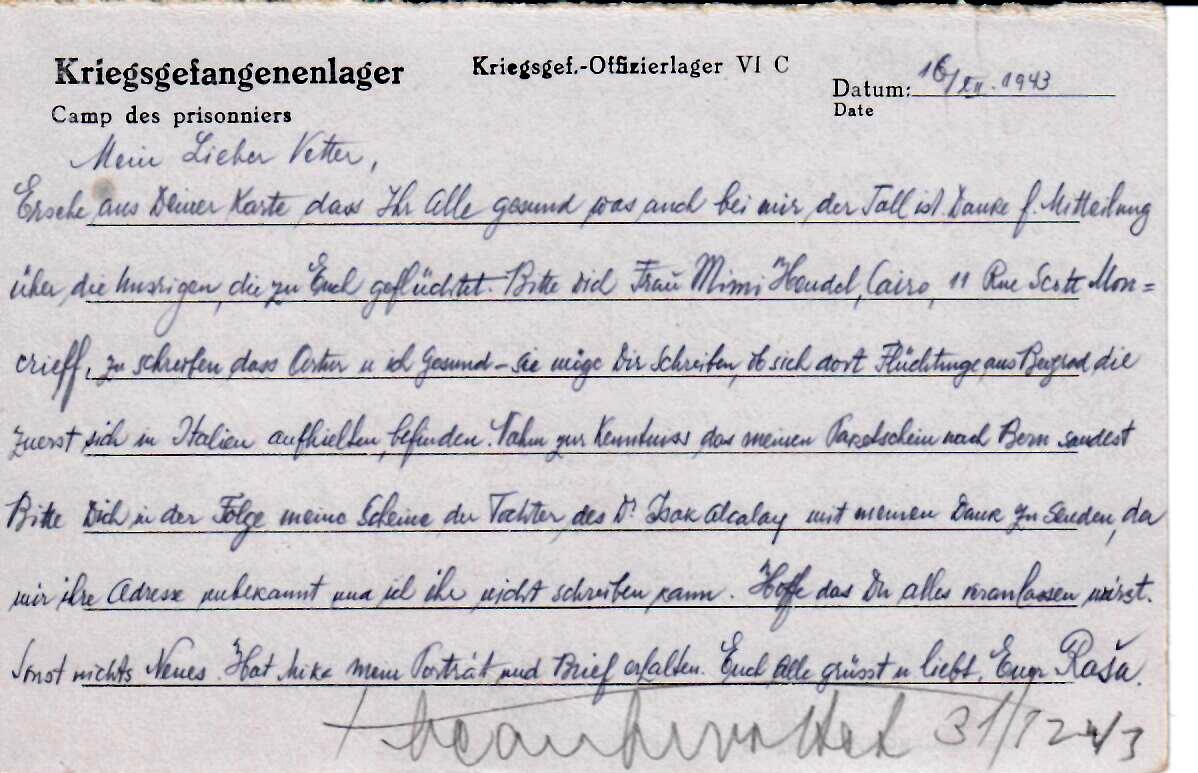 Kriegsgefangenenlager
Kriegsgef.-Offizierlager VI C
Datum: 16/XII. 1943
Camp des prisonniers
Date
Mein Lieber Vetter,
Ersehe aus Deiner Karte dass Ihr Alle gesund was auch bei mir der Fall ist Danke f. Mitteilung
über die Unsrigen, die zu Euch geflüchtet. Bitte Dich Frau Mimi Hendel, Cairo, 11 Rue Scott Mon=
crieff, zu schreiben dass Artur u ich Gesund – sie möge Dir Schreiben, ob sich dort Flüchtlinge aus Beograd die
zuerst sich in Italien aufhielten, befinden. Nahm zur Kenntniss das meinen Paketschein nach Bern sandest
Bitte Dich in der Folge meine Scheine der Tochter des Dr Isak Alcalay mit meinen Dank zu Senden, da
mir ihre Adresse unbekannt und ich ihr nicht schreiben kann. Hoffe das Du alles veranlassen wirst.
Sonst nichts Neues. Hat Mika mein Porträt und Brief erhalten. Euch Alle grüsst u liebt, Euer Raša.
31/12 43